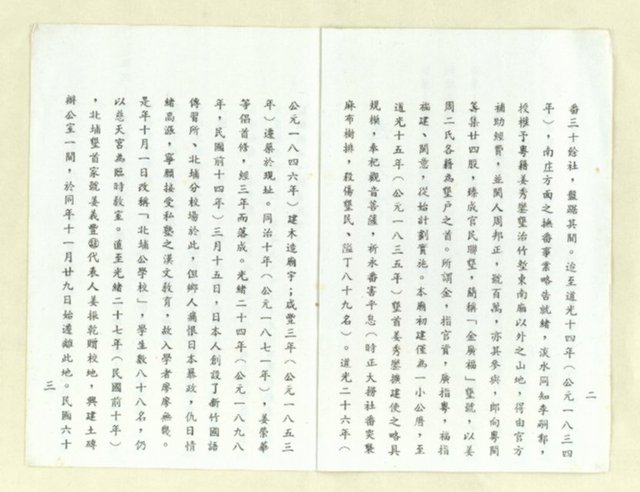 番三十餘社，盤踞其間。迨至道光十四年（公元一八三四
年），南庄方面之撫番事業略告就緒，淡水同知李嗣鄴，
授權予粵籍姜秀鑾墾治竹塹東南廂以外之山地，得由官方
補助經費，並閩人周邦正，號百萬，亦其參與，即向粵閩
籌集廿四股，臻成官民聯墾，簡稱「金廣福」墾號，以姜
周二氏各籍為墾戶之首。所謂金，指官資，廣指粵，福指
福建、閩意，從始計劃實施。本廟初建僅為一小公厝，至
道光十五年（公元一八三五年）墾首姜秀鑾擴建使之略具
規模，奉祀觀音菩薩，祈永番害平息（時正大撈社番突襲
麻布樹排，殺傷墾民、隘丁八十九名）。道光二十六年（
二
公元一八四六年）建木造廟宇；咸豐三年（公元一八五三
年）遷築於現址。同治十年（公元一八七一年），姜榮華
等倡首修，經三年而落成。光緒二十四年（公元一八九八
年，民國前十四年）三月十五日，日本人創設了新竹國語
傳習所、北埔分校場於此，但鄉人痛恨日本暴政，仇日情
緒高漲，寧願接受私塾之漢文教育，故入學者寥寥無幾。
是年十月一日改稱「北埔公學校」，學生數八十八名，仍
以慈天宮為臨時教室。直至光緒二十七年（民國前十年）
，北埔墾首家號姜義豐代表人姜振乾贈校地，興建土碑
辦公室一間，於同年十一月廿九日始遷離此地。民國六十
三